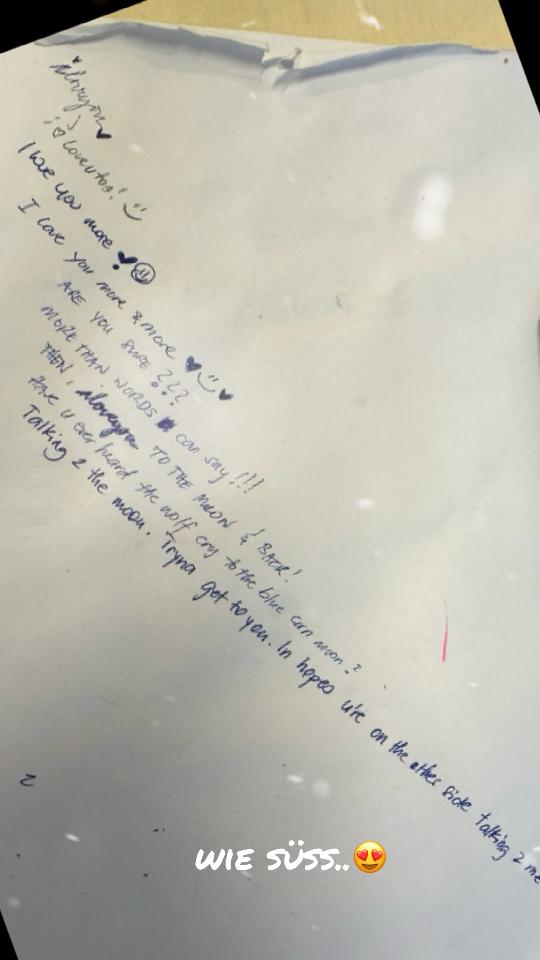 iloveyou
i loveutoo!
I love you more
I love you more & more
ARE YOU SURE???
MORE THAN WORDS can say!!!
THEN, iloveyou TO THE MOON & BACK!
Have u ever heard the wolf cry to the blue corn moon?
Talking 2 the moon. Tryna get to you. In hopes u're on the other side talking 2 me
WIE SÜSS..😍